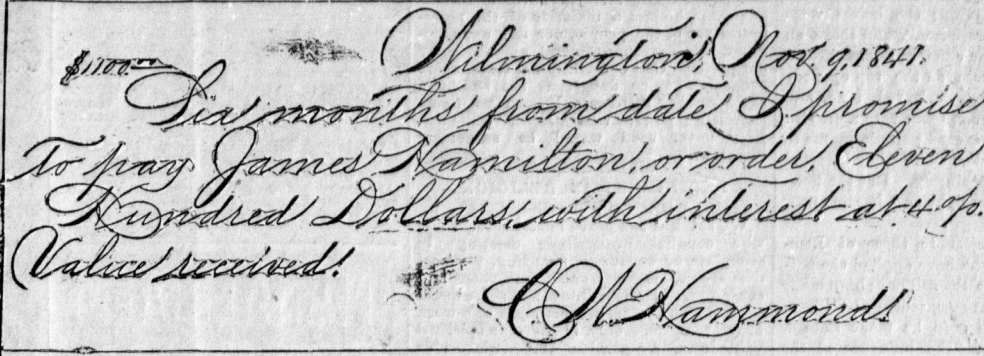 $1100.00 Wilmington, Nov. 9, 1841.
Six months from date I promise
to pay James Hamilton, or order, Eleven
Hundred Dollars, with interest at 4 %.
Value received.
C W Hammond